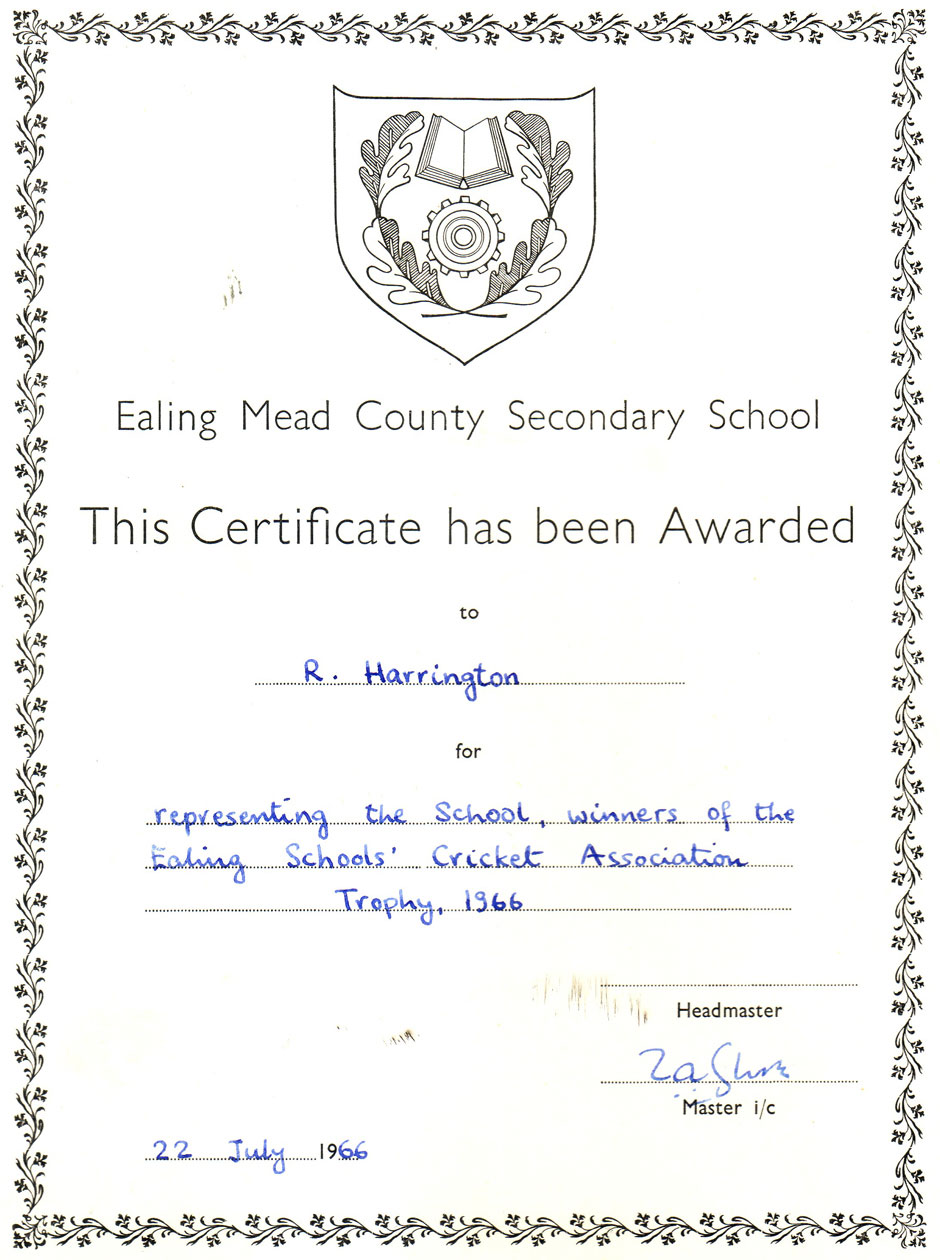 Ealing Mead County Secondary School
This Certificate has been Awarded
to
R. Harrington
for
representing the School, winners of the
Ealing Schools' Cricket Association
Trophy, 1966
Headmaster
Master i/c
22 July 1966